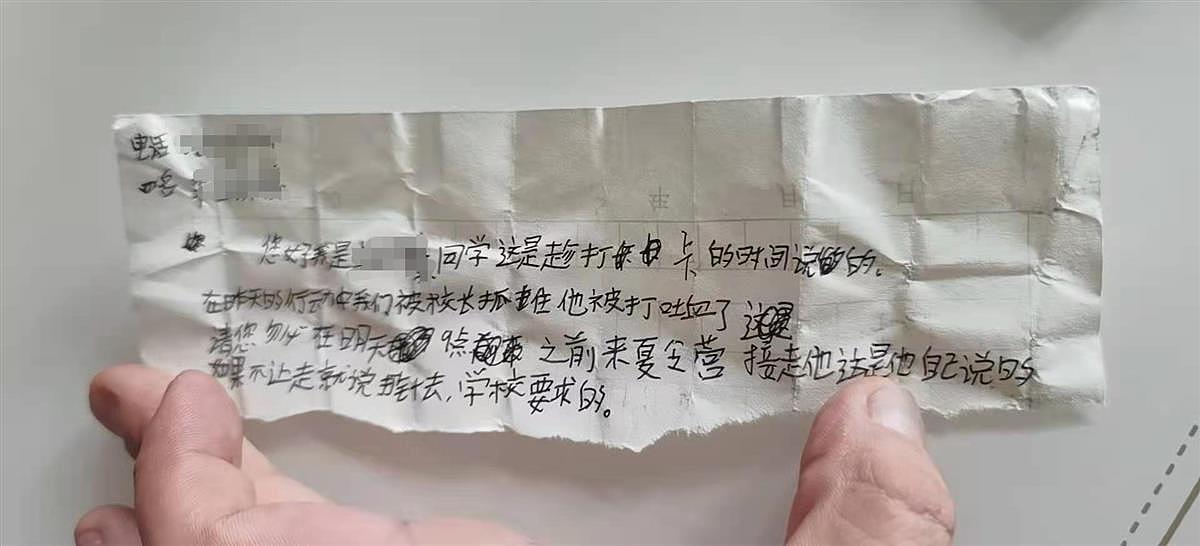 电话
姓名
您好我是 同学这是趁打卡的时间说的。
在昨天的行动中我们被校长抓住他被打吐血了
请您务必在明天9点之前来夏令营接走他这是他自己说的
如果不让走就说 去,学校要求的。
年 月 日